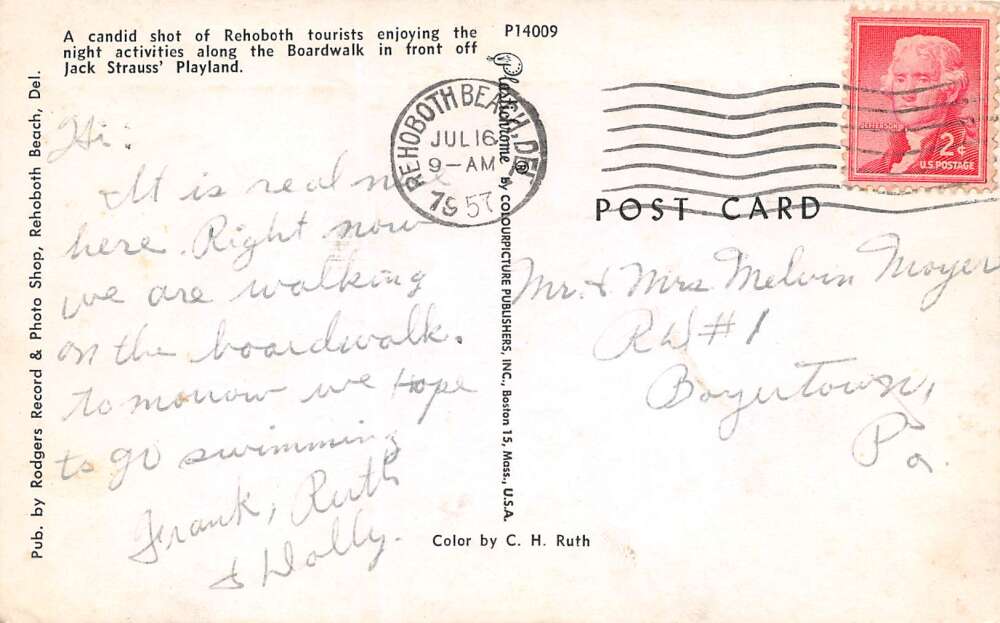 A candid shot of Rehoboth tourists enjoying the
night activities along the Boardwalk in front off
Jack Strauss' Playland.
P14009
Pub. by Rodgers Record & Photo Shop, Rehoboth Beach, Del.
Plastichrome ® by COLOURPICTURE PUBLISHERS, INC., Boston 15, Mass., U.S.A.
REHOBOTH BEACH, DEL
JUL 16
9-AM
1957
JEFFERSON
2¢
U.S. POSTAGE
POST CARD
Hi:
It is real nice
here. Right now
we are walking
on the boardwalk.
tomorrow we Hope
to go swimming
Frank, Ruth
& Dolly.
Mr. & Mrs Melvin Moyer
RD #1
Boyertown,
Pa.
Color by C. H. Ruth